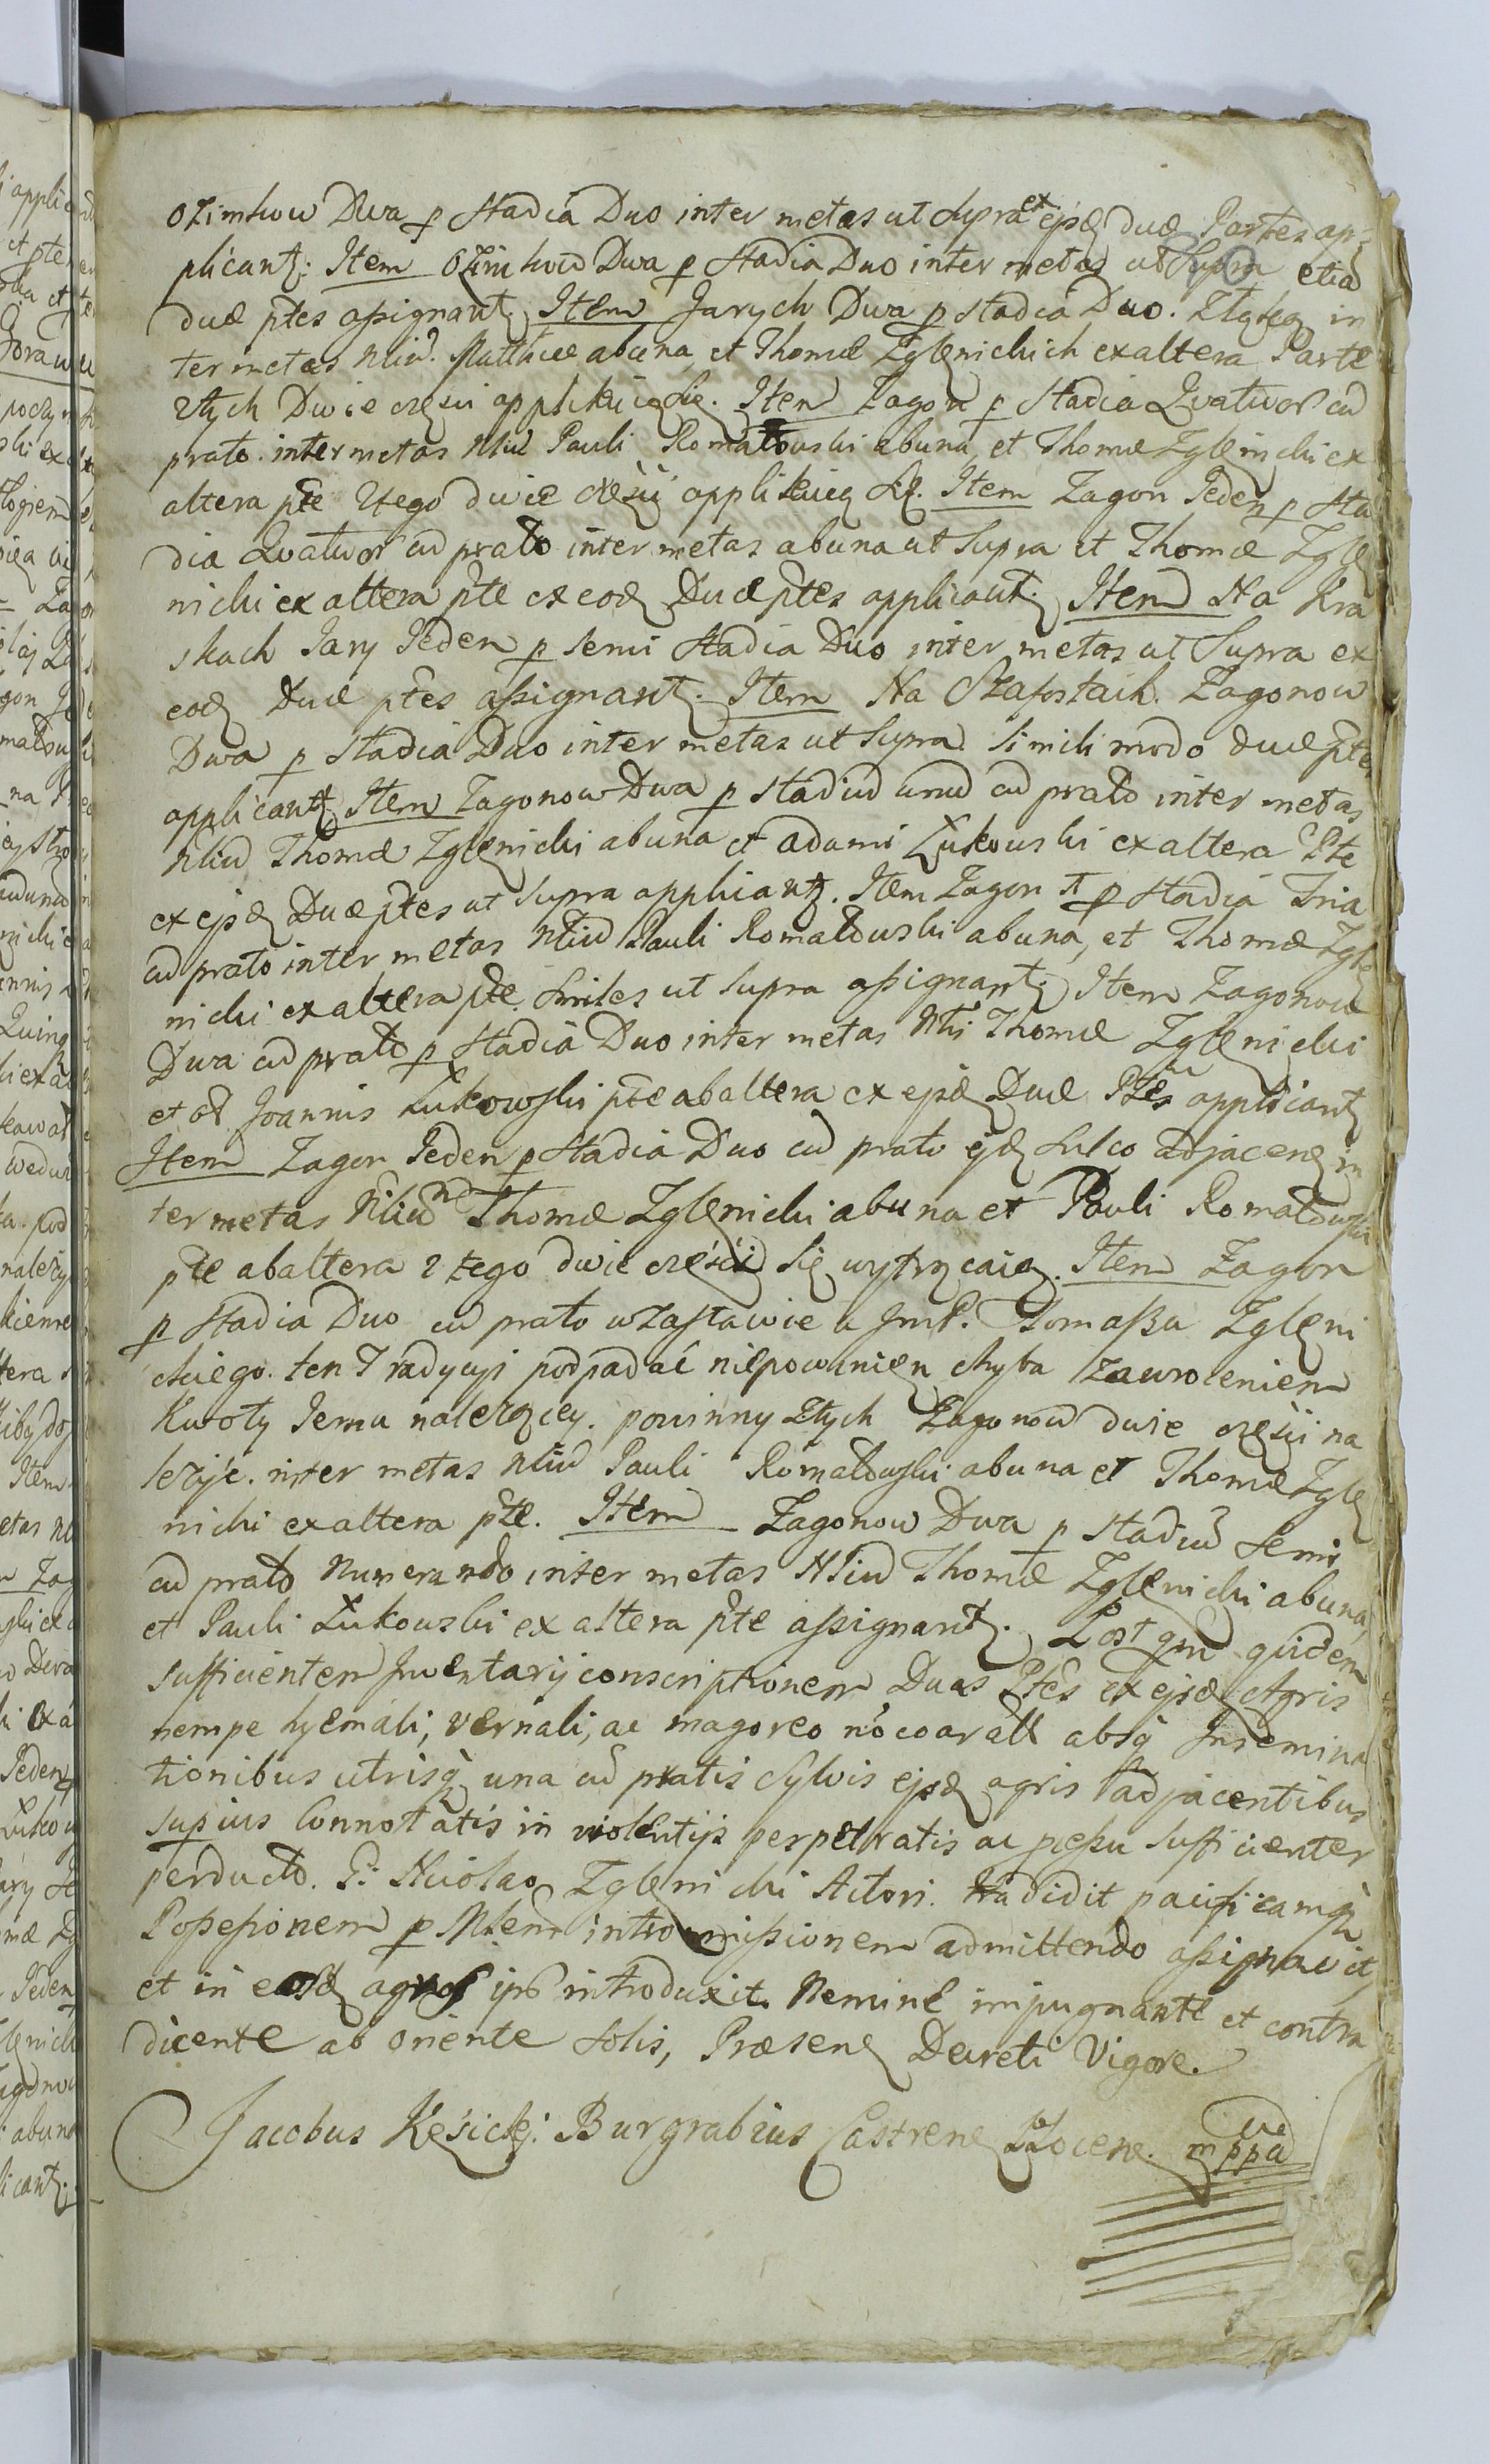 Ozimkow Dwa p Stadia Duo inter metas ut Supra ex ejsd duæ Partes ap=
plicant. Item Ozimkow Dwa p Stadia Duo inter metas ut Supra etia
duæ ptes assignant. Item Jarych Dwa p stadia Duo. in
ter metas Nliu Matthiæ ab una, et Thomæ Zglenickich ex altera Parte
ztych Dwie części applikuią się. Item Zagon p Stadia Qvatuor cu
prato. inter metas Nliu Pauli Romatowski ab una, et Thomæ Zglenicki ex
altera pte ztego dwie częsci applikuią się. Item Zagon Jeden p Sta
dia Qvatuor cu prato inter metas ab una ut Supra et Thomæ Zgle
nicki ex altera pte ex eod Duæ ptes applicant. Item Na Kra
skach Jary Jeden p Semi Stadia Duo inter metas ut Supra ex
eod Duæ ptes assignant. Item Na Zagonow
Dwa p Stadia Duo inter metas ut Supra Simili modo duæ ptes
applicant. Item Zagonow Dwa p stadiu unu cu prato inter metas
Nliu Thomæ Zglenicki ab una et Adami Łukowski ex altera Pte
ex ejsd Duæ ptes ut Supra applicant. Item Zagon 1 p Stadia Tria
cu prato inter metas Nliu Pauli Romaldwski ab una, et Thomæ Zgle
nicki ex altera pte. Similes ut Supra assignant. Item Zagonow
Dwa cu prato p Stadia Duo inter metas Nlis Thomæ Zglenicki
et Joannis Łukowski pte ab altera ex ejsd Duæ Ptes applicant
Item Zagon Jeden p Stadia Duo cu prato ejd Sulco adjacen in
ter metas Nliu Thomæ Zglenicki ab una et Pauli Romaldwski
pte ab altera z tego dwie części się wytrącaią. Item Zagon
p Stadia Duo cu prato w Zastawie u JmP. Tomasza Zgleni
ckiego. ten Tradycyi podpadać niepowinien chyba zawroceniem
Kwoty Jemu należącey. powinny ztych Zagonow dwie częsci na
leżyć. inter metas Nliu Pauli Romaldwski ab una et Thomæ Zgle
nicki ex altera pte. Item Zagonow Dwa p stadiu Semi
cu prato numerando inter metas Nliu Thomæ Zglenicki ab una,
et Pauli Łukowski ex altera pte assignant. Post qm quidem
sufficientem Inventarij conscriptionem Duas Ptes ex ejsd Agris
nempe hyemali, vernali, ac magoreo absq Insemina
tionibus utrisq una cu pratis Sylvis ejsd agris adjacentibus
supius Connotatis in violentijs perpetratis ac pcessu Sufficienter
perducto. G. Nicolao Zglenicki Actori. tradidit pacificamq
Possessionem p Mlem intromissionem admittendo assignavit,
et in eosd agros ips introduxit. Nemine impugnante et contra
dicente ab oriente Solis, Præsen Decreti Vigore.
Jacobus Kęsicki Burgrabius Castren Plocen. mppa